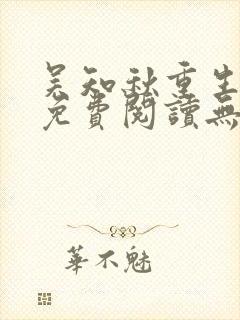 吴知秋重生
免費閱讀無
華不魅